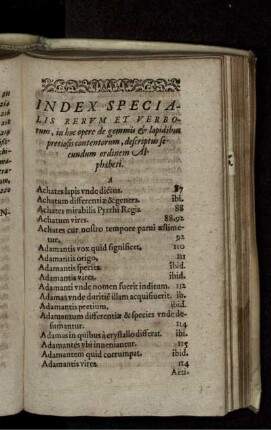 INDEX SPECIA-
LIS RERVM ET VERBO-
rum, in hoc opere de gemmis & lapidibus
pretiosis contentorum, descriptus se-
cundum ordinem Al-
phabeti.
A
Achates lapis vnde dictus. 87
Achatum differentiæ & genera. ibi.
Achates mirabilis Pyrrhi Regis. 88
Achatum vires. 88.92
Achates cur nostro tempore parui æstime-
tur. 92
Adamantis vox quid significet. 110
Adamantis origo. 111
Adamantis species. ibid.
Adamantis vires. ibid.
Adamanti vnde nomen fuerit inditum. 112
Adamas vnde duritiē illam acquisiuerit. ib.
Adamantis pretium. ibid.
Adamantum differentiæ & species vnde de-
sumantur. 114
Adamas in quibus à crystallo differat. ibi.
Adamantes vbi inueniantur. 115
Adamantem quid corrumpat. ibid.
Adamantis vires. 114
Aeti-